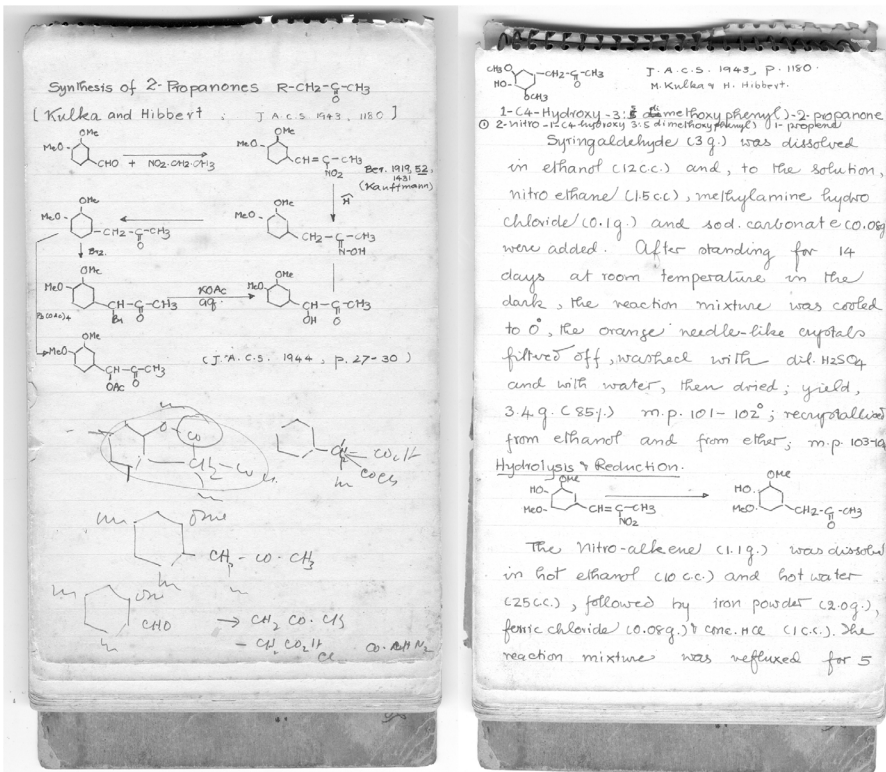 Synthesis of 2-Propanones R-CH2-C-CH3
O
[ Kulka and Hibbert : J.A.C.S. 1943, 1180 ]
OMe
MeO
CHO + NO2.CH2.CH3
OMe
MeO
CH=C-CH3
NO2
Ber. 1919, 52,
1431
(Kauffmann)
H
OMe
MeO
CH2-C-CH3
O
OMe
MeO
CH2-C-CH3
N-OH
Br2
OMe
MeO
CH-C-CH3
Br O
KOAc
aq.
OMe
MeO
CH-C-CH3
OH O
Pb(OAc)4
OMe
MeO
CH-C-CH3
OAc O
(J.A.C.S. 1944, p. 27-30)
O
CO
CO2H
COCl
OMe
CH2 - CO - CH3
OMe
CHO
→ CH2 CO. CH3
- CH2 CO2H
Cl
CH3O
HO
OCH3
-CH2-C-CH3
O
J.A.C.S. 1943, P. 1180.
M. Kulka & H. Hibbert.
1-(4-Hydroxy-3:5 dimethoxy phenyl)-2-propanone
① 2-nitro-1-(4-hydroxy 3:5 dimethoxyphenyl) 1-propene
Syringaldehyde (3g.) was dissolved
in ethanol (12c.c) and, to the solution,
nitro ethane (1.5c.c), methylamine hydro
chloride (0.1g.) and sod. carbonate (0.08g
were added. After standing for 14
days at room temperature in the
dark, the reaction mixture was cooled
to 0°, the orange needle-like crystals
filtered off, washed with dil. H2SO4
and with water, then dried; yield,
3.4.g. (85%) m.p. 101-102°; recrystallised
from ethanol and from ether; m.p. 103-10
Hydrolysis & Reduction.
OMe
HO
MeO
CH=C-CH3
NO2
OMe
HO
MeO
CH2-C-CH3
O
The Nitro-alkene (1.1g.) was dissolved
in hot ethanol (10 c.c.) and hot water
(25c.c.), followed by iron powder (2.0g.),
ferric chloride (0.08g.) & conc. HCl (1 c.c.). The
reaction mixture was refluxed for 5